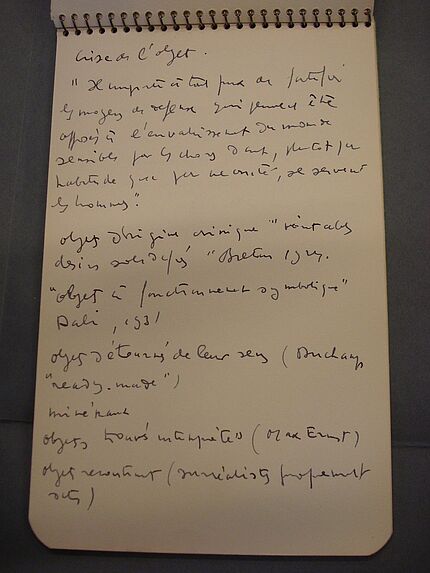 Crise de l'objet.
"Il importe à tout prix de fortifier
les moyens de défense qui peuvent être
opposés à l'envahissement du monde
sensible par les choses dont, plutôt par
habitude que par nécessité, se servent
les hommes".
objets d'origine onirique "véritables
désirs solidifiés" Breton 1924.
"objets à fonctionnement symbolique"
Dali, 1931
objets détournés de leur sens (Duchamp
"ready-made")
minéraux
objets trouvés interprétés (Max Ernst)
objets (surréalistes proprement
dits)